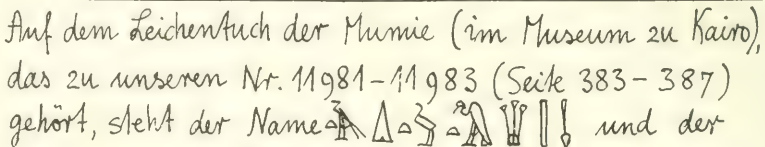 Auf dem Leichentuch der Mumie (im Museum zu Kairo),
das zu unseren Nr. 11981-11983 (Seite 383-387)
gehört, steht der Name und der